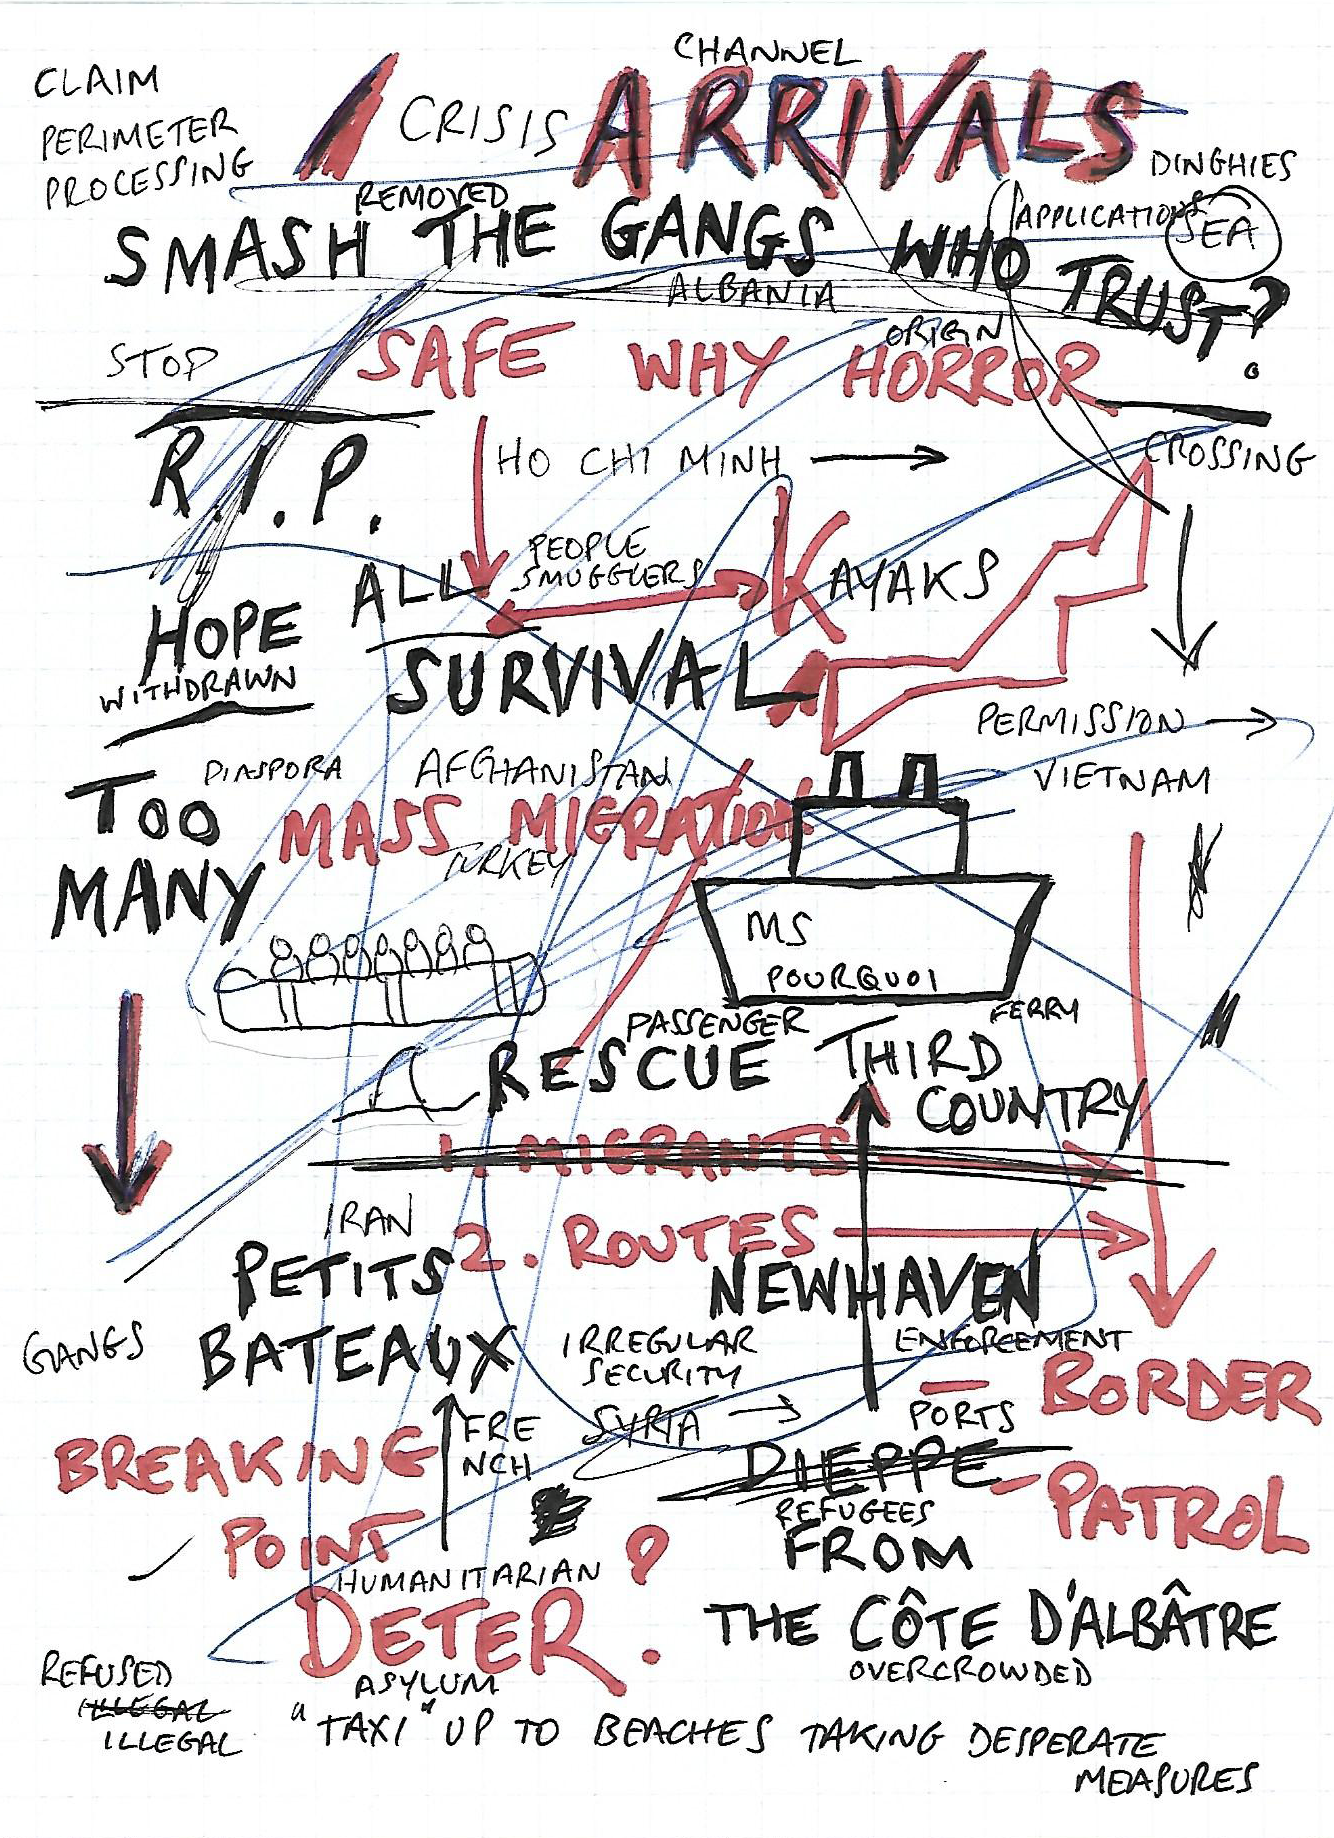 CHANNEL
CLAIM
PERIMETER
PROCESSING
CRISIS ARRIVALS
DINGHIES
REMOVED
APPLICATIONS
SEA
SMASH THE GANGS WHO TRUST?
ALBANIA
ORIGIN
STOP
SAFE WHY HORROR
R.I.P.
HO CHI MINH
CROSSING
PEOPLE
SMUGGLERS
ALL
KAYAKS
HOPE
WITHDRAWN
SURVIVAL
PERMISSION
DIASPORA
AFGHANISTAN
VIETNAM
TOO
MANY
MASS MIGRATION
TURKEY
MS
POURQUOI
PASSENGER
FERRY
RESCUE
THIRD
COUNTRY
1. MIGRANTS
IRAN
2. ROUTES
PETITS
BATEAUX
NEWHAVEN
GANGS
IRREGULAR
SECURITY
ENFORCEMENT
BORDER
PATROL
SYRIA
PORTS
FRE
NCH
BREAKING
POINT
DIEPPE
REFUGEES
FROM
HUMANITARIAN
?
DETER.
THE CÔTE D'ALBÂTRE
OVERCROWDED
REFUSED
ILLEGAL
ILLEGAL
ASYLUM
"TAXI" UP TO BEACHES TAKING DESPERATE
MEASURES